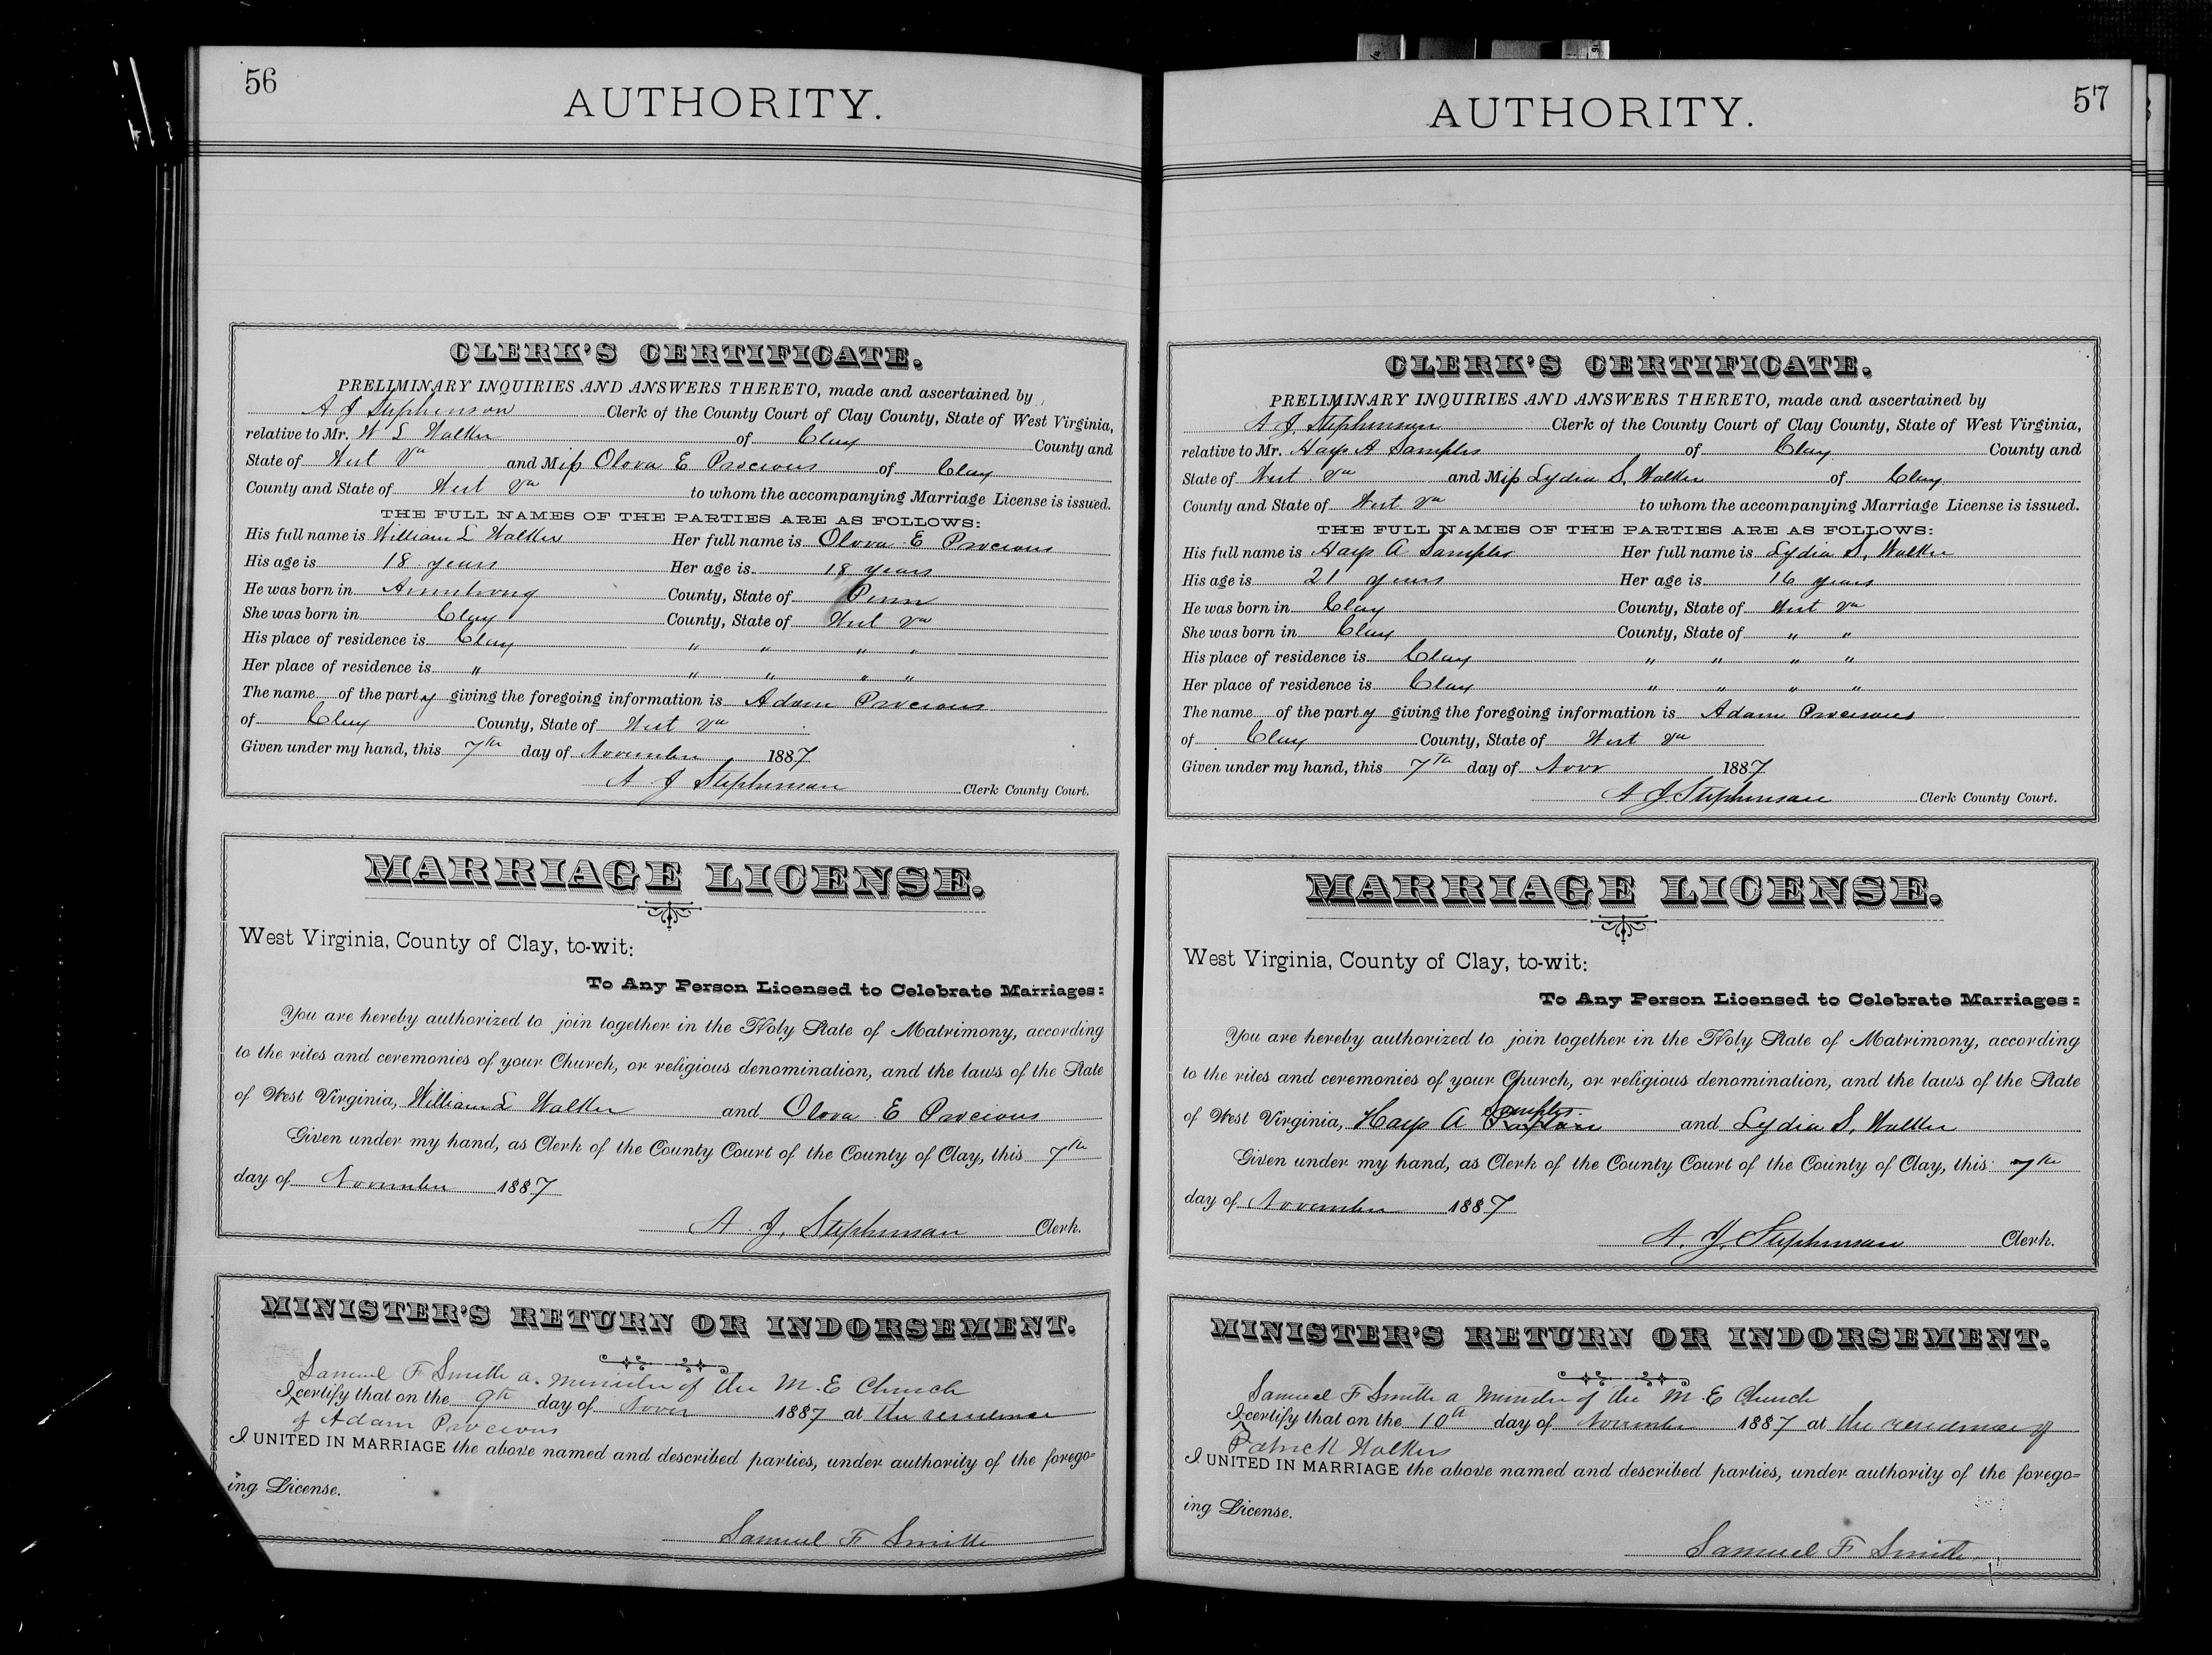 56
AUTHORITY.
CLERK'S CERTIFICATE.
PRELIMINARY INQUIRIES AND ANSWERS THERETO, made and ascertained by
A J Stephenson Clerk of the County Court of Clay County, State of West Virginia,
relative to Mr. W L Walker of Clay County and
State of West Va and Miss Olova E Procious of Clay
County and State of West Va to whom the accompanying Marriage License is issued.
THE FULL NAMES OF THE PARTIES ARE AS FOLLOWS:
His full name is William L Walker Her full name is Olova E Procious
His age is 18 years Her age is 18 years
He was born in Armstrong County, State of Penn
She was born in Clay County, State of West Va
His place of residence is Clay " " " "
Her place of residence is " " " " "
The name of the party giving the foregoing information is Adam Procious
of Clay County, State of West Va
Given under my hand, this 7th day of November 1887
A J Stephenson Clerk County Court.
MARRIAGE LICENSE.
West Virginia, County of Clay, to-wit:
To Any Person Licensed to Celebrate Marriages:
You are hereby authorized to join together in the Holy State of Matrimony, according
to the rites and ceremonies of your Church, or religious denomination, and the laws of the State
of West Virginia, William L Walker and Olova E Procious
Given under my hand, as Clerk of the County Court of the County of Clay, this 7th
day of November 1887
A. J. Stephenson Clerk.
MINISTER'S RETURN OR INDORSEMENT.
Samuel F Smith a minister of the M. E Church
I certify that on the 9th day of Novr 1887 at the residence
of Adam Procious
I UNITED IN MARRIAGE the above named and described parties, under authority of the forego=
ing License.
Samuel F Smith
57
AUTHORITY.
CLERK'S CERTIFICATE.
PRELIMINARY INQUIRIES AND ANSWERS THERETO, made and ascertained by
A. J. Stephenson Clerk of the County Court of Clay County, State of West Virginia,
relative to Mr. Harp A Samples of Clay County and
State of West Va and Miss Lydia S, Walker of Clay
County and State of West Va to whom the accompanying Marriage License is issued.
THE FULL NAMES OF THE PARTIES ARE AS FOLLOWS:
His full name is Harp A Samples Her full name is Lydia S, Walker
His age is 21 years Her age is 16 years
He was born in Clay County, State of West Va
She was born in Clay County, State of " "
His place of residence is Clay " " " "
Her place of residence is Clay " " " "
The name of the party giving the foregoing information is Adam Procious
of Clay County, State of West Va
Given under my hand, this 7th day of Novr 1887
A J. Stephenson Clerk County Court.
MARRIAGE LICENSE.
West Virginia, County of Clay, to-wit:
To Any Person Licensed to Celebrate Marriages:
You are hereby authorized to join together in the Holy State of Matrimony, according
to the rites and ceremonies of your Church, or religious denomination, and the laws of the State
of West Virginia, Harp A Samples and Lydia S, Walker
Given under my hand, as Clerk of the County Court of the County of Clay, this 7th
day of November 1887
A. J. Stephenson Clerk.
MINISTER'S RETURN OR INDORSEMENT.
Samuel F Smith a minister of the M. E Church
I certify that on the 10th day of November 1887 at the residence of
Patrick Walkers
I UNITED IN MARRIAGE the above named and described parties, under authority of the forego=
ing License.
Samuel F Smith